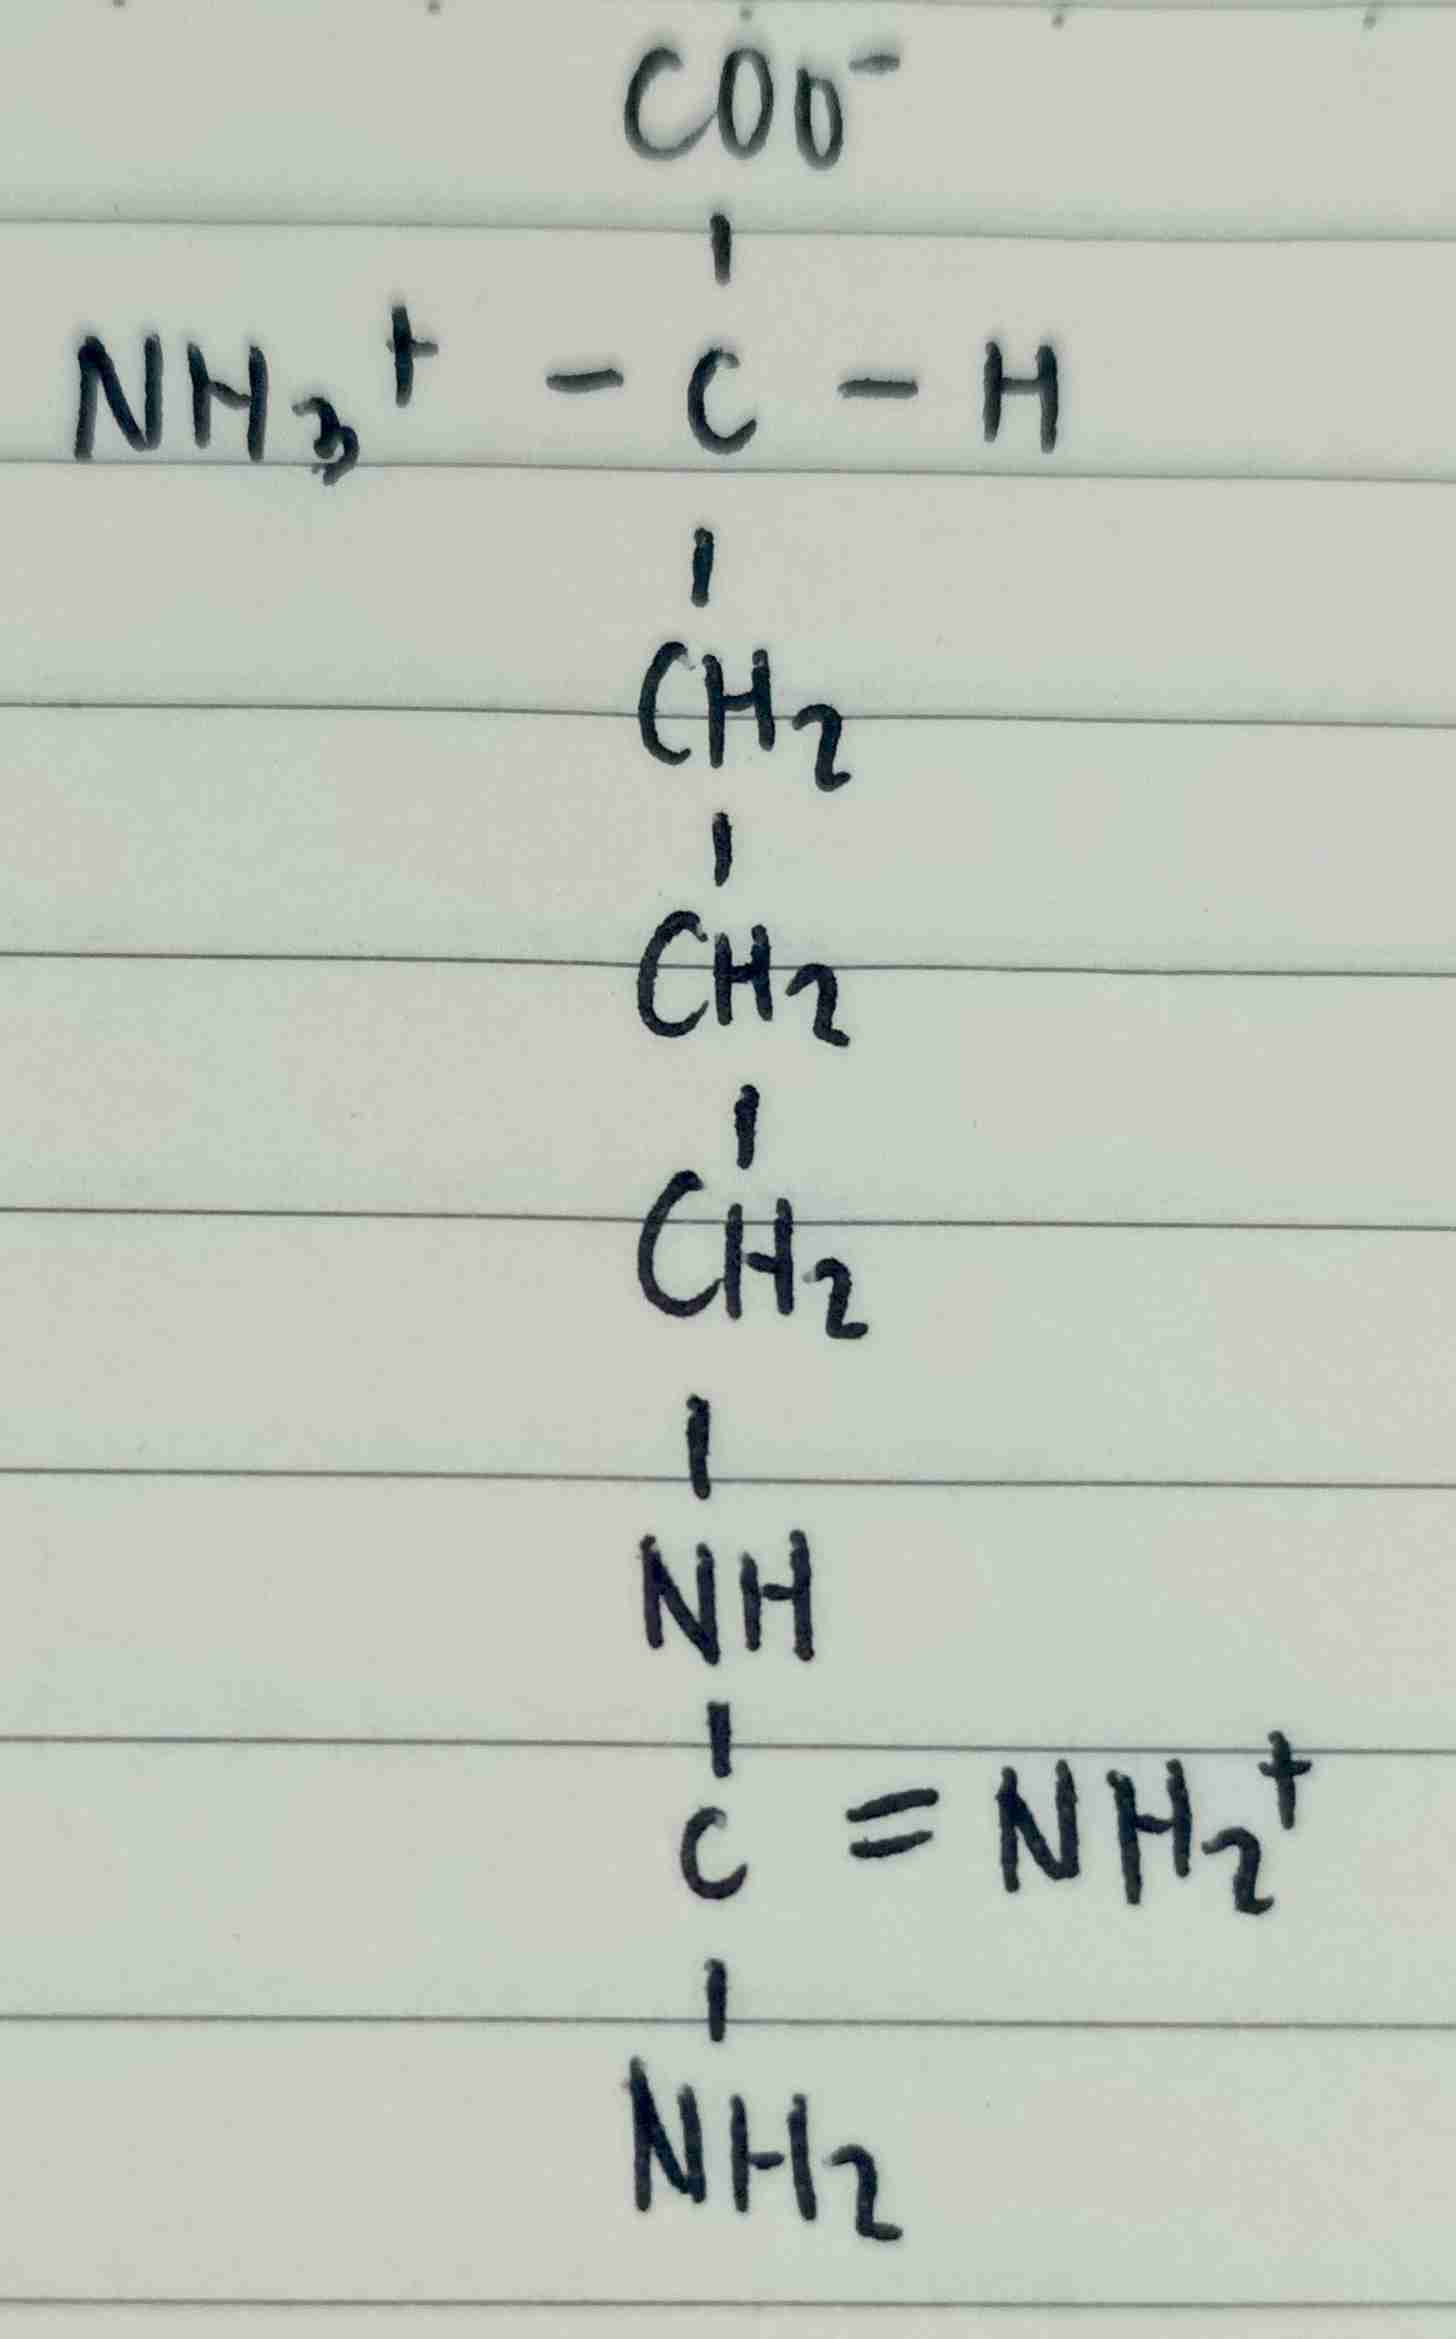 COO⁻
NH₃⁺ - C - H
CH₂
CH₂
CH₂
NH
C = NH₂⁺
NH₂